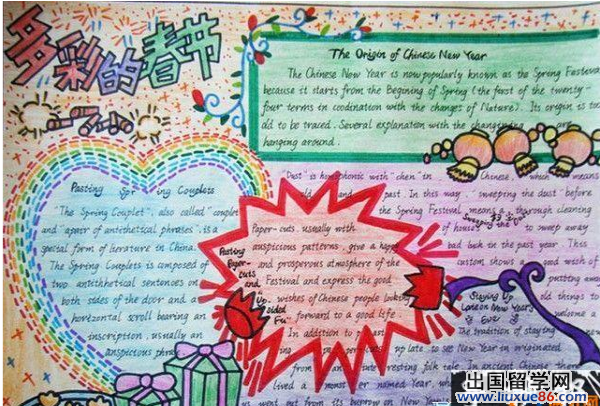 多彩的春节
The Origin of Chinese New Year
The Chinese New Year is now popularly known as the Spring Festival
because it starts from the Begining of Spring (the first of the twenty-
four terms in coodination with the changes of Nature). Its origin is too
old to be traced. Several explanation with the
hanging around.
Pasting Spring Couplets
"The Spring Couplet", also called "couplet
and "a pair of antithetical phrases", is a
special form of literature in China.
The Spring Couplets is composed of
two antithetical sentences on
both sides of the door and a
horizontal scroll bearing an
inscription, usually an
auspicious
Pasting
Paper-
cuts
and
Up
sided
Fu"
Paper-cuts, usually with
auspicious patterns, give a happy
and prosperous atmosphere of the
Festival and express the good
wishes of Chinese people looking
forward to a good life.
In addition to
"Dust" is homophonic with "chen" in Chinese, which means
old and past. In this way, "sweeping the dust" before
the Spring Festival means a through cleaning
of house to sweep away
bad luck in the past year. This
custom shows a good wish of
putting away
old things to
welcome a
Staying Up
Late on New Year's
Eve
The tradition of staying
up late to see New Year in originated
from an interesting folk tale. In ancient China there
lived a monster named Year, who
went out from its burrow on New Year's
出国留学网
www.liuxue86.com